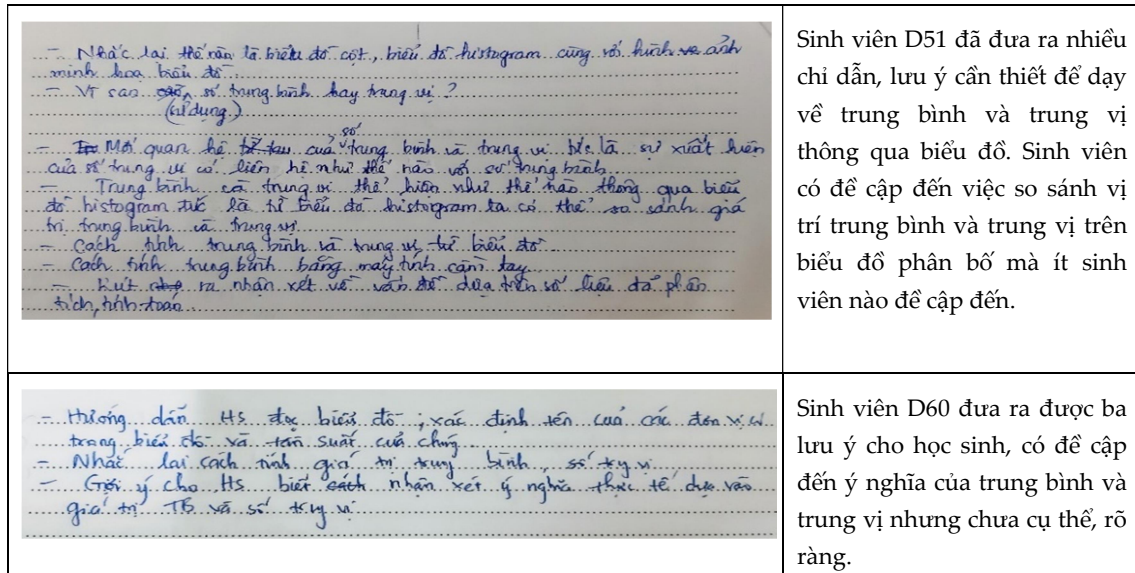 - Nhắc lại thế nào là biểu đồ cột, biểu đồ histogram cùng với hình ảnh
minh hoạ biểu đồ.
- Vì sao số trung bình hay trung vị ?
(sử dụng)
- Mối quan hệ của số trung bình và trung vị tức là sự xuất hiện
của số trung vị có liên hệ như thế nào với số trung bình
- Trung bình và trung vị thể hiện như thế nào thông qua biểu
đồ histogram tức là từ biểu đồ histogram ta có thể so sánh giá
trị trung bình và trung vị
- Cách tính trung bình và trung vị từ biểu đồ
- Cách tính trung bình bằng máy tính cầm tay
- Rút ra nhận xét về vấn đề dựa trên số liệu đã phân
tích, tính toán.
Sinh viên D51 đã đưa ra nhiều
chỉ dẫn, lưu ý cần thiết để dạy
về trung bình và trung vị
thông qua biểu đồ. Sinh viên
có đề cập đến việc so sánh vị
trí trung bình và trung vị trên
biểu đồ phân bố mà ít sinh
viên nào đề cập đến.
- Hướng dẫn HS đọc biểu đồ ; xác định tên của các đơn vị
trong biểu đồ và tần suất của chúng
- Nhắc lại cách tính giá trị trung bình, số trg vị.
- Gợi ý cho HS biết cách nhận xét ý nghĩa thực tế dựa vào
giá trị TB và số trg vị
Sinh viên D60 đưa ra được ba
lưu ý cho học sinh, có đề cập
đến ý nghĩa của trung bình và
trung vị nhưng chưa cụ thể, rõ
ràng.